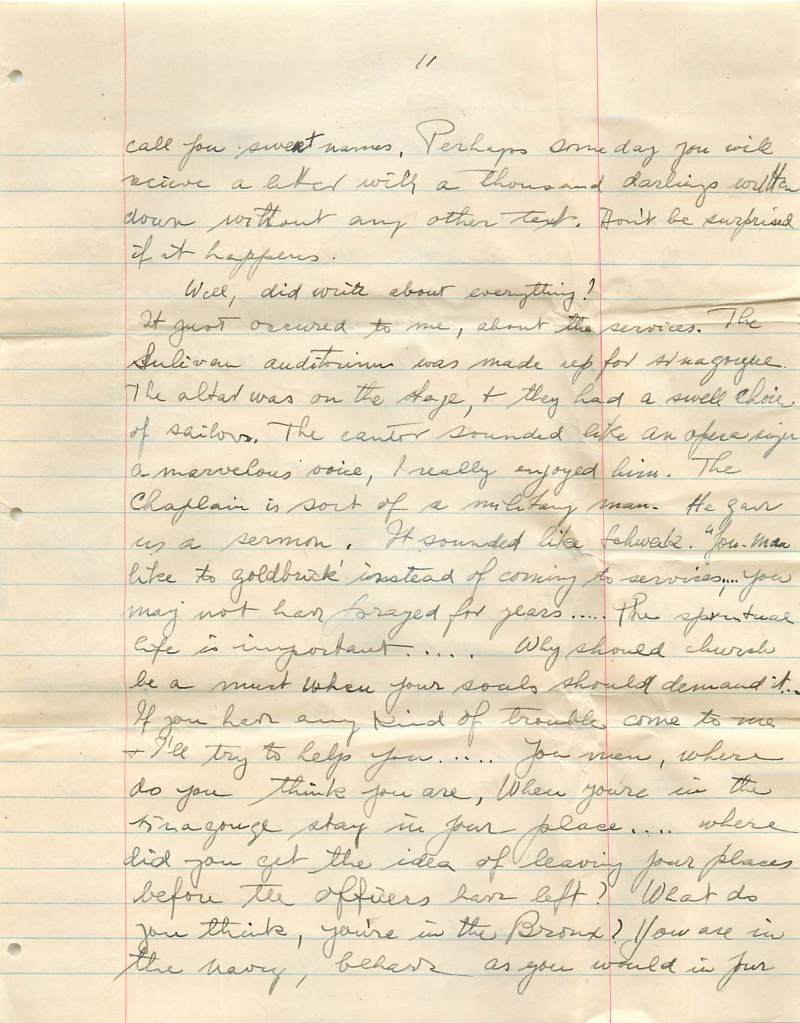 11
call you sweet names. Perhaps someday you will
recieve a letter with a thousand darlings written
down without any other text. Don't be surprised
if it happens.
Well, did write about everything?
It just occured to me, about the services. The
Sulivan auditorium was made up for sinagogue.
The altar was on the stage, & they had a swell choir
of sailors. The cantor sounded like an opera singer
a marvelous voice, I really enjoyed him. The
Chaplain is sort of a military man. He gave
us a sermon. It sounded like "You men
like to goldbrick instead of coming to services,... You
may not have prayed for years..... The spiritual
life is important..... Why should church
be a must when your souls should demand it...
If you have any kind of trouble come to me
& I'll try to help you..... You men, where
do you think you are, When you're in the
sinagouge stay in your place.... where
did you get the idea of leaving your places
before the officers have left? What do
you think, you're in the Bronx? You are in
the navy, behave as you would in your